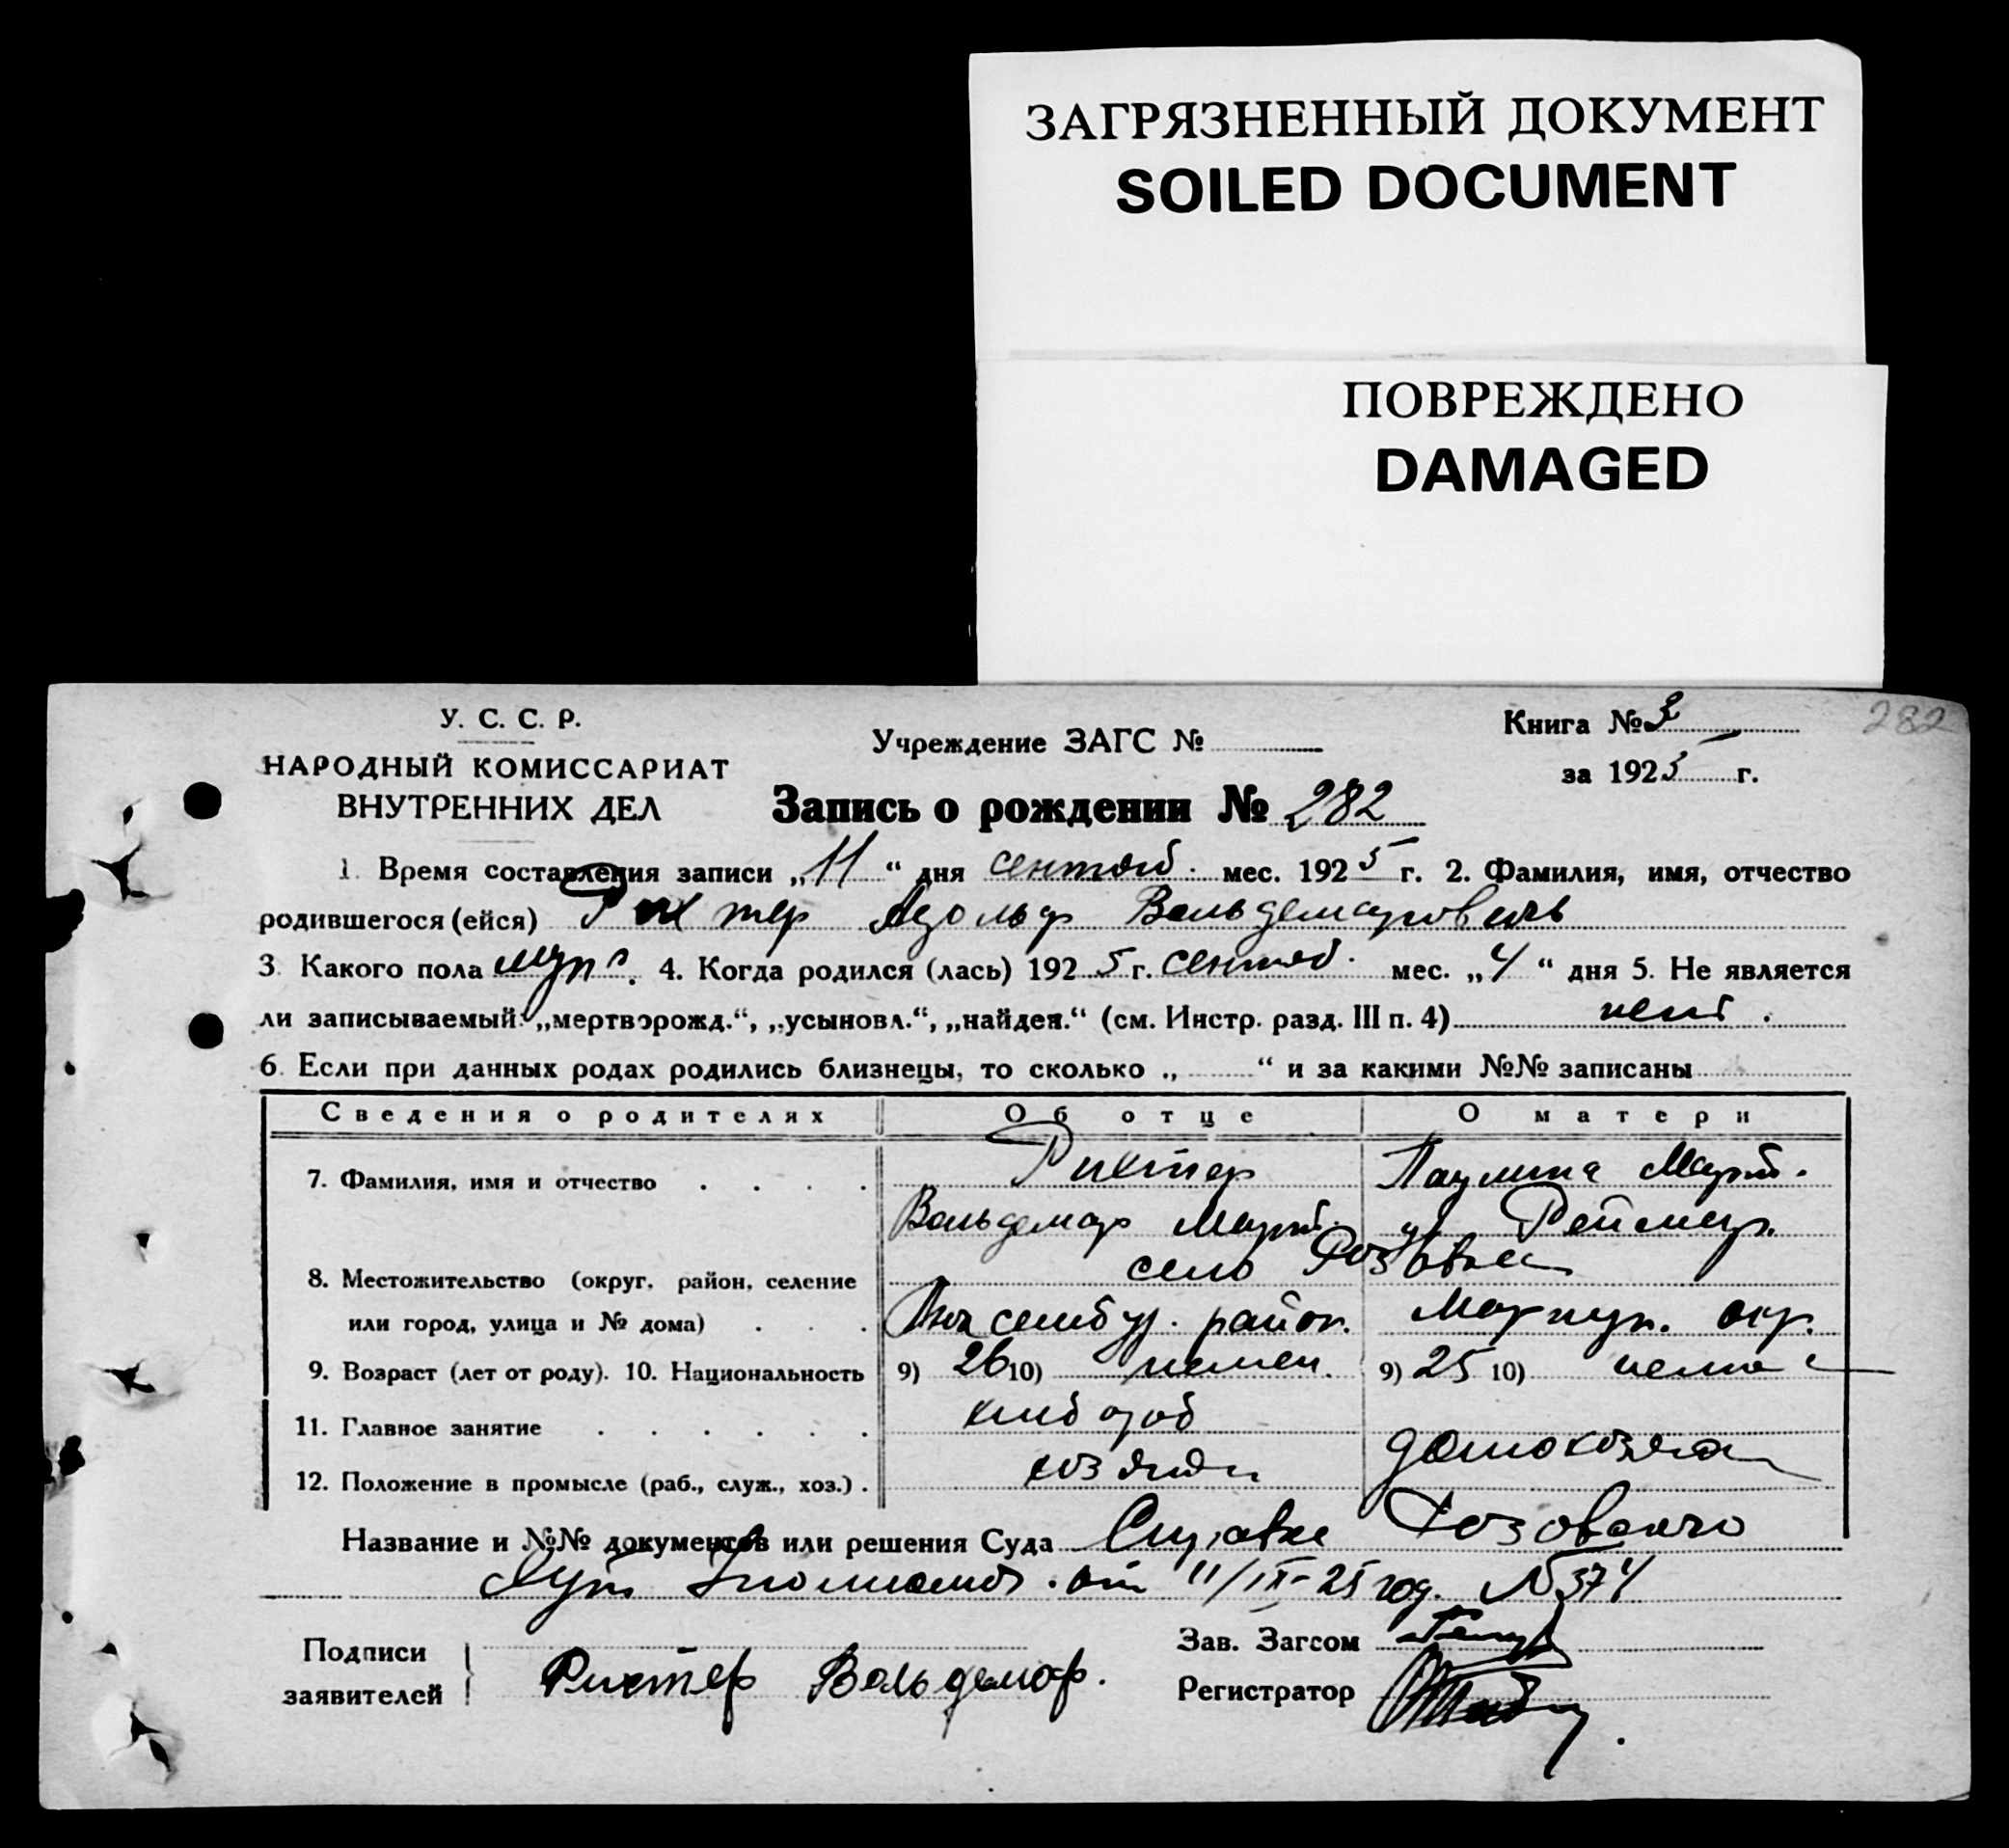 ЗАГРЯЗНЕННЫЙ ДОКУМЕНТ
SOILED DOCUMENT
ПОВРЕЖДЕНО
DAMAGED
У. С. С. Р.
НАРОДНЫЙ КОМИССАРИАТ
ВНУТРЕННИХ ДЕЛ
Учреждение ЗАГС №
Книга № 3
282
за 1925 г.
Запись о рождении № 282
1. Время составления записи „11“ дня сентяб. мес. 1925 г. 2. Фамилия, имя, отчество
родившегося (ейся) Рихтер Адольф Вальдемарович
3. Какого пола муж. 4. Когда родился (лась) 1925 г. сентяб. мес. „4“ дня 5. Не является
ли записываемый: „мертворожд.“, „усыновл.“, „найден.“ (см. Инстр. разд. III п. 4) нет.
6. Если при данных родах родились близнецы, то сколько „ “ и за какими №№ записаны
Сведения о родителях Об отце О матери
7. Фамилия, имя и отчество . . . . Рихтер Паулина Март.
Вальдемар Март. Реймер.
село Розовка
8. Местожительство (округ, район, селение
или город, улица и № дома) . . . Люксембур. район. Мариуп. окр.
9. Возраст (лет от роду). 10. Национальность 9) 26 10) немец. 9) 25 10) немка
11. Главное занятие . . . . . . хлебороб
домохозяйка
12. Положение в промысле (раб., служ., хоз.) . хозяин
Название и №№ документов или решения Суда Справка Розовского
от 11/IX-25 год. № 374
Подписи
заявителей
Рихтер Вальдемар.
Зав. Загсом
Регистратор